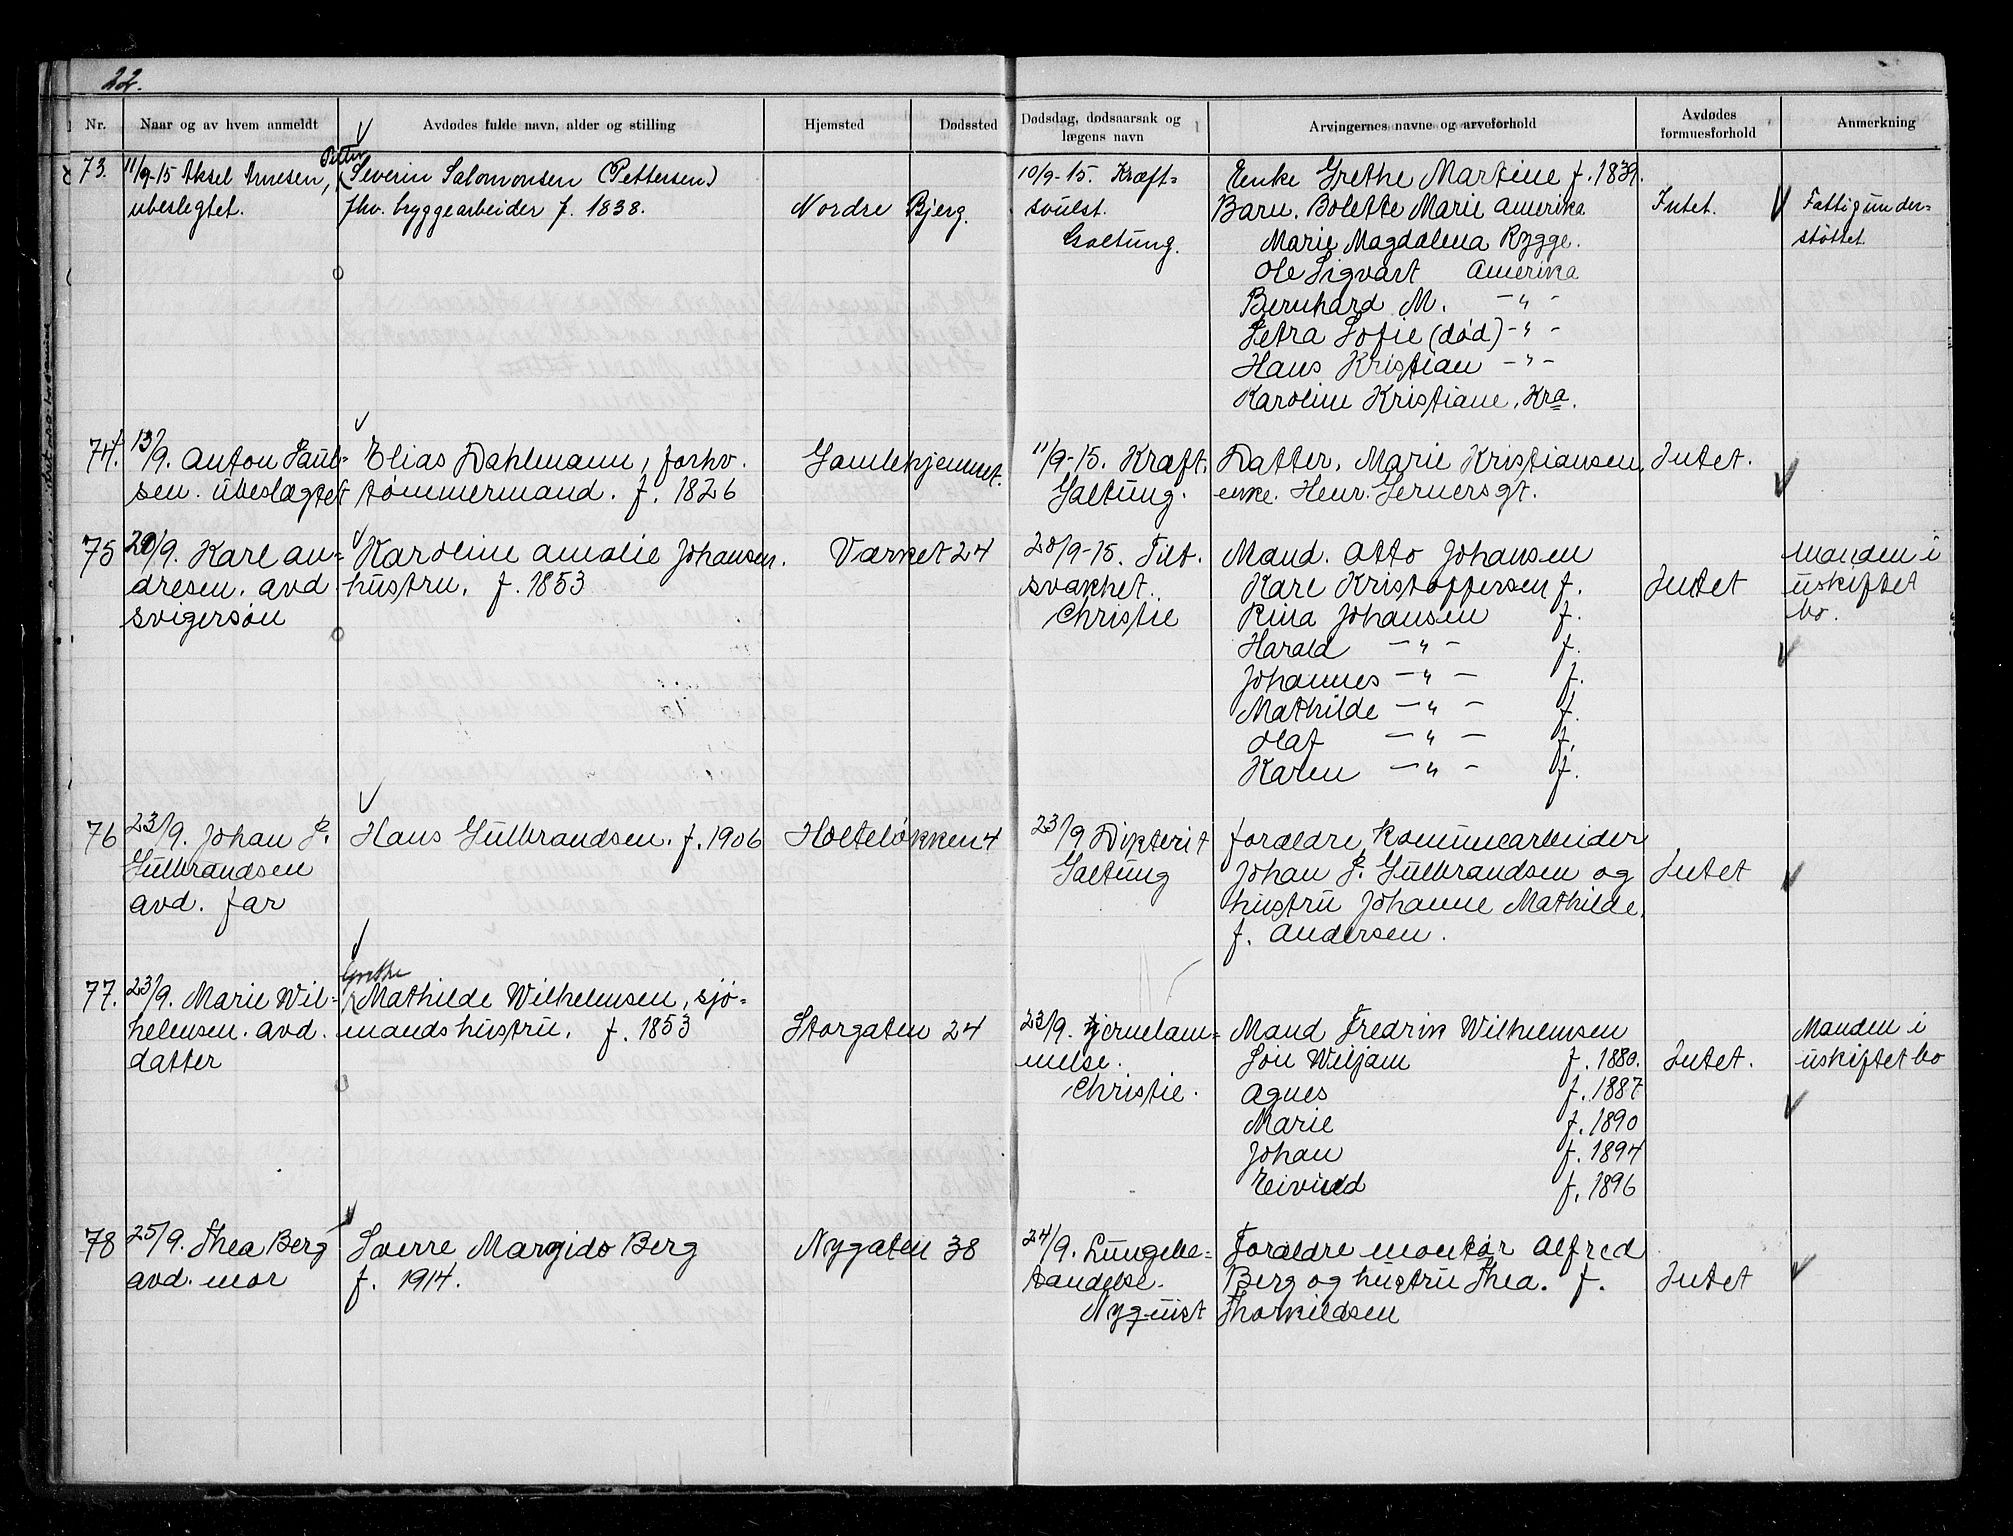 22.
Nr.
Naar og av hvem anmeldt
Avdødes fulde navn, alder og stilling
Hjemsted
Dødssted
Dødsdag, dødsaarsak og
lægens navn
Arvingernes navne og arveforhold
Avdødes
formuesforhold
Anmerkning
73.
11/9-15 Aksel Arnesen,
ubeslegtet.
Petter
Severin Salomonsen (Pettersen)
fhv. bryggearbeider f. 1838.
Nordre Bjerg.
10/9-15. Kræft-
svulst.
Galtung.
Enke Grethe Martine f. 1839.
Barn. Bolette Marie Amerika
Marie Magdalena Rygge.
Ole Sigvart Amerika
Bernhard M. -"-
Petra Sofie (død) -"-
Hans Kristian -"-
Karoline Kristiane, Kra.
Intet.
Fattigunder-
støttet.
74.
13/9. Anton Paul-
sen. ubeslægtet
Elias Dahlmann, forhv.
tømmermand. f. 1826
Gamlehjemmet.
11/9-15. Kræft.
Galtung.
Datter, Marie Kristiansen,
enke. Henr. Gerners gt.
Intet.
75
20/9. Karl An-
dresen. avd
svigersøn
Karoline Amalie Johansen.
hustru. f. 1853
Værket 24
20/9-15. Tilt.
svakhet.
Christie
Mand. Otto Johansen
Karl Kristoffersen f.
Rina Johansen f.
Harald -"- f.
Johannes -"- f.
Mathilde -"- f.
Olaf -"- f.
Karen -"- f.
Intet
Manden i
uskiftet
bo.
76
23/9. Johan P.
Gulbrandsen
avd. far
Hans Gulbrandsen. f. 1906
Holteløkken 4
23/9 Difterit
Galtung
forældre, kommunearbeider
Johan P. Gulbrandsen og
hustru Johanne Mathilde,
f. Andersen.
Intet
77.
23/9. Marie Wil-
helmsen. avd.
datter
Grethe
Mathilde Wilhelmsen, sjø-
mandshustru. f. 1853
Storgaten 24
23/9. hjernelam-
melse.
Christie.
Mand Fredrik Wilhelmsen
Søn Wiljam f. 1880.
Agnes f. 1887
Marie f. 1890
Johan f. 1894
Eivind f. 1896
Intet.
Manden i
uskiftet bo
78
25/9. Thea Berg
avd. mor
Sverre Margido Berg
f. 1914.
Nygaten 38
24/9. Lungebe-
tændelse.
Nyquist
Forældre montør Alfred
Berg og hustru Thea. f.
Thorkildsen
Intet